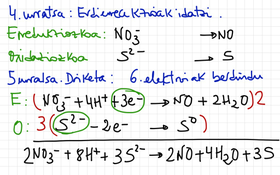 4. urratsa: Erdierreakzioak idatzi.
Erredukziozkoa: NO₃⁻ → NO
Oxidaziozkoa: S²⁻ → S
5 urratsa. Doiketa: 6. elektroiak berdindu
E: (NO₃⁻ + 4H⁺ + 3e⁻ → NO + 2H₂O) 2
O: 3 (S²⁻ - 2e⁻ → S⁰)
2NO₃⁻ + 8H⁺ + 3S²⁻ → 2NO + 4H₂O + 3S